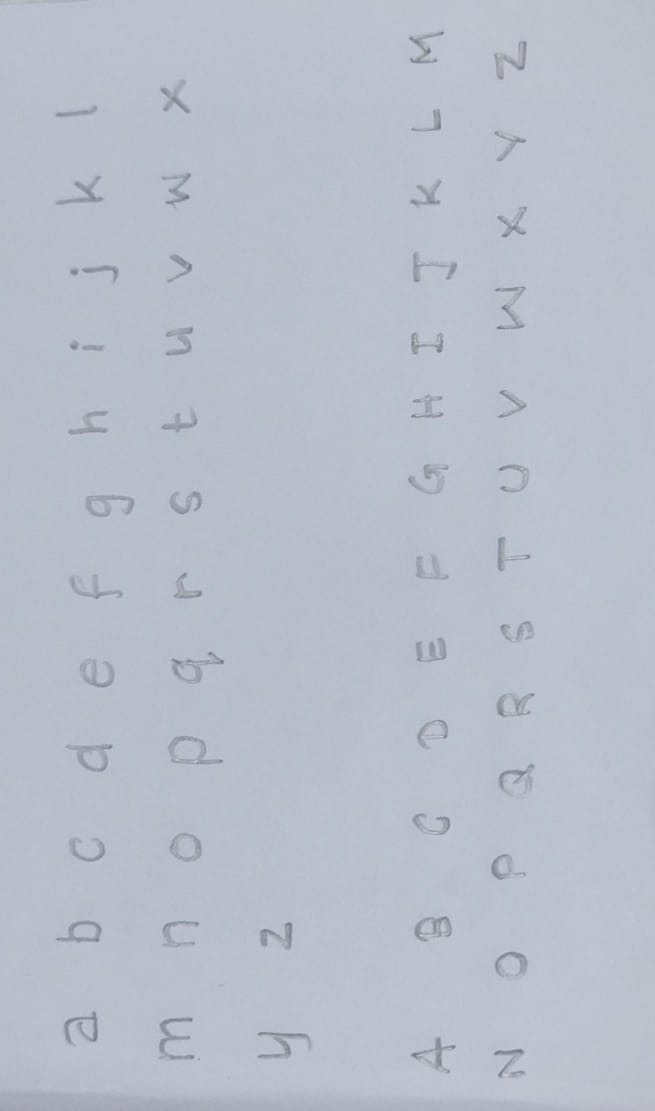 a b c d e f g h i j k l
m n o p q r s t u v w x
y z
A B C D E F G H I J K L M
N O P Q R S T U V W X Y Z